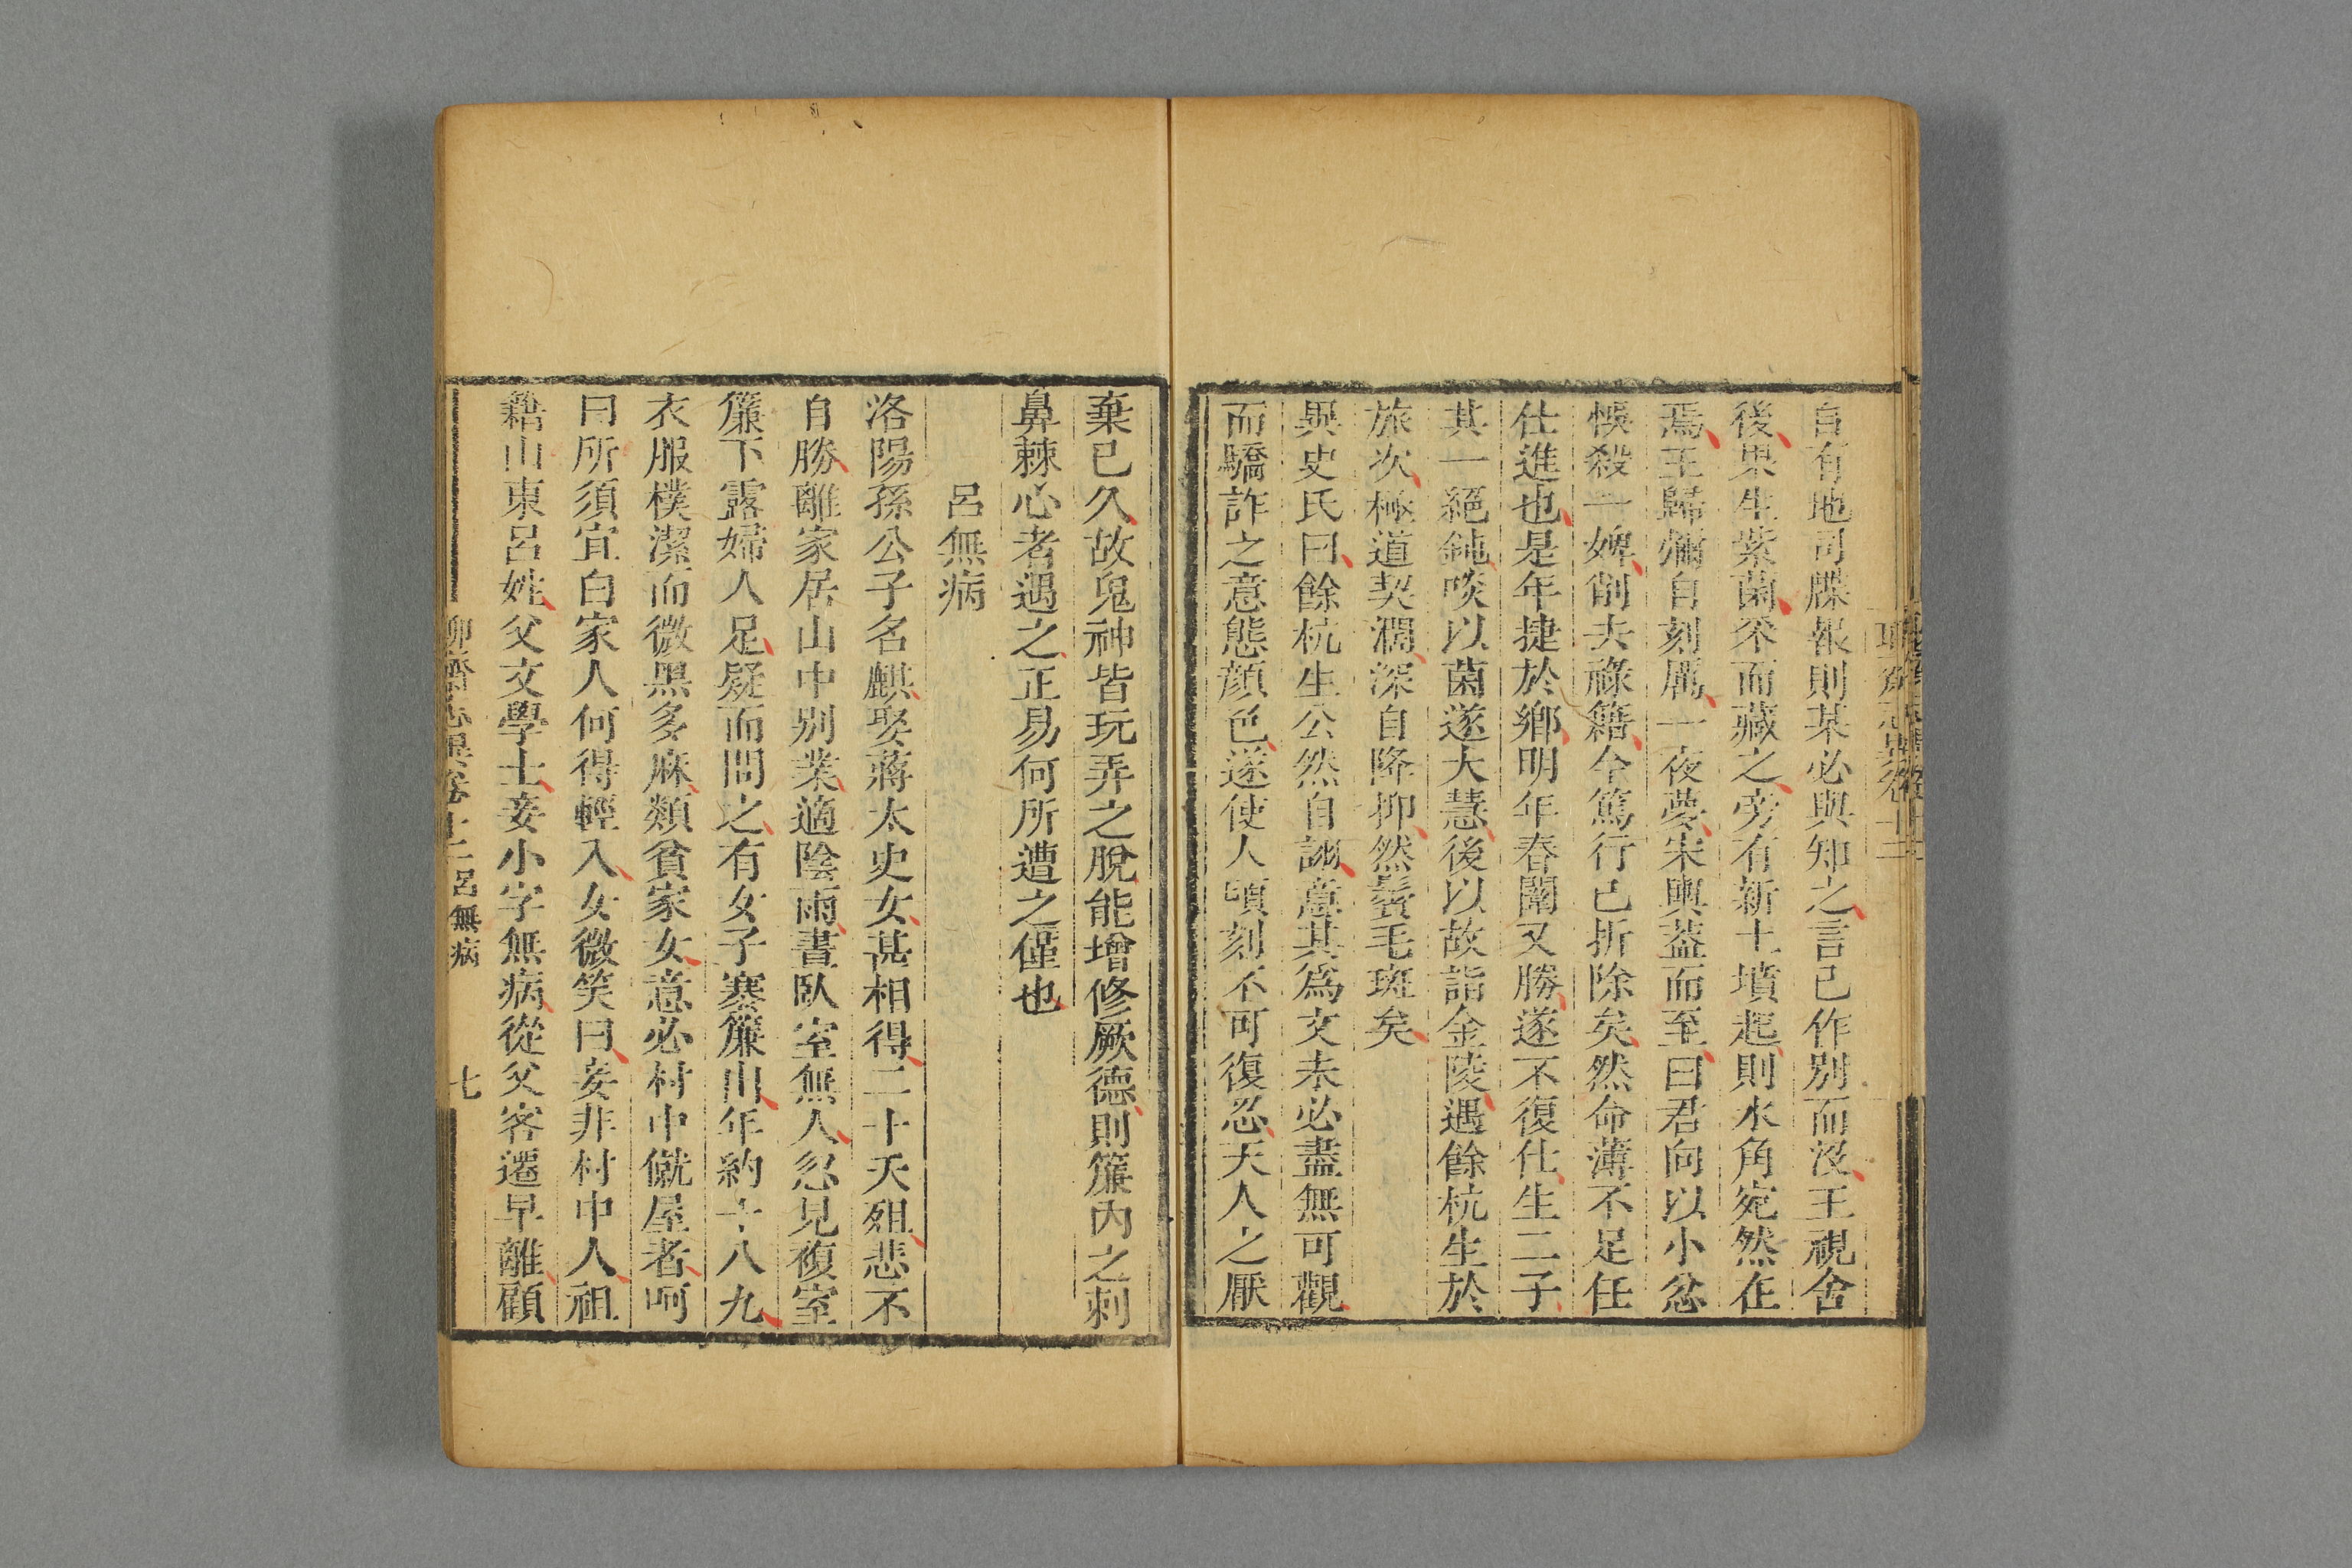 自有地司牒報則某必與知之言已作別而沒王視舍
後果生紫菌采而藏之旁有新土墳起則水角宛然在
焉王歸彌自刻厲一夜夢宋輿蓋而至曰君向以小忿
悞殺一婢削去祿籍今篤行已折除矣然命薄不足任
仕進也是年捷於鄉明年春闈又勝遂不復仕生二子
其一絕鈍啖以菌遂大慧後以故詣金陵遇餘杭生於
旅次極道契濶深自降抑然鬢毛斑矣
異史氏曰餘杭生公然自詡意其為文未必盡無可觀
而驕詐之意態顏色遂使人頃刻不可復忍天人之厭
棄已久故鬼神皆玩弄之脫能增修厥德則簾內之刺
鼻棘心者遇之正易何所遭之僅也
呂無病
洛陽孫公子名麒娶蔣太史女甚相得二十夭殂悲不
自勝離家居山中別業適陰雨晝臥室無人忽見複室
簾下露婦人足疑而問之有女子褰簾出年約十八九
衣服樸潔而微黑多麻類貧家女意必村中僦屋者呵
曰所須宜白家人何得輕入女微笑曰妾非村中人祖
籍山東呂姓父文學士妾小字無病從父客遷早離顧
聊齋志異卷十二呂無病 七